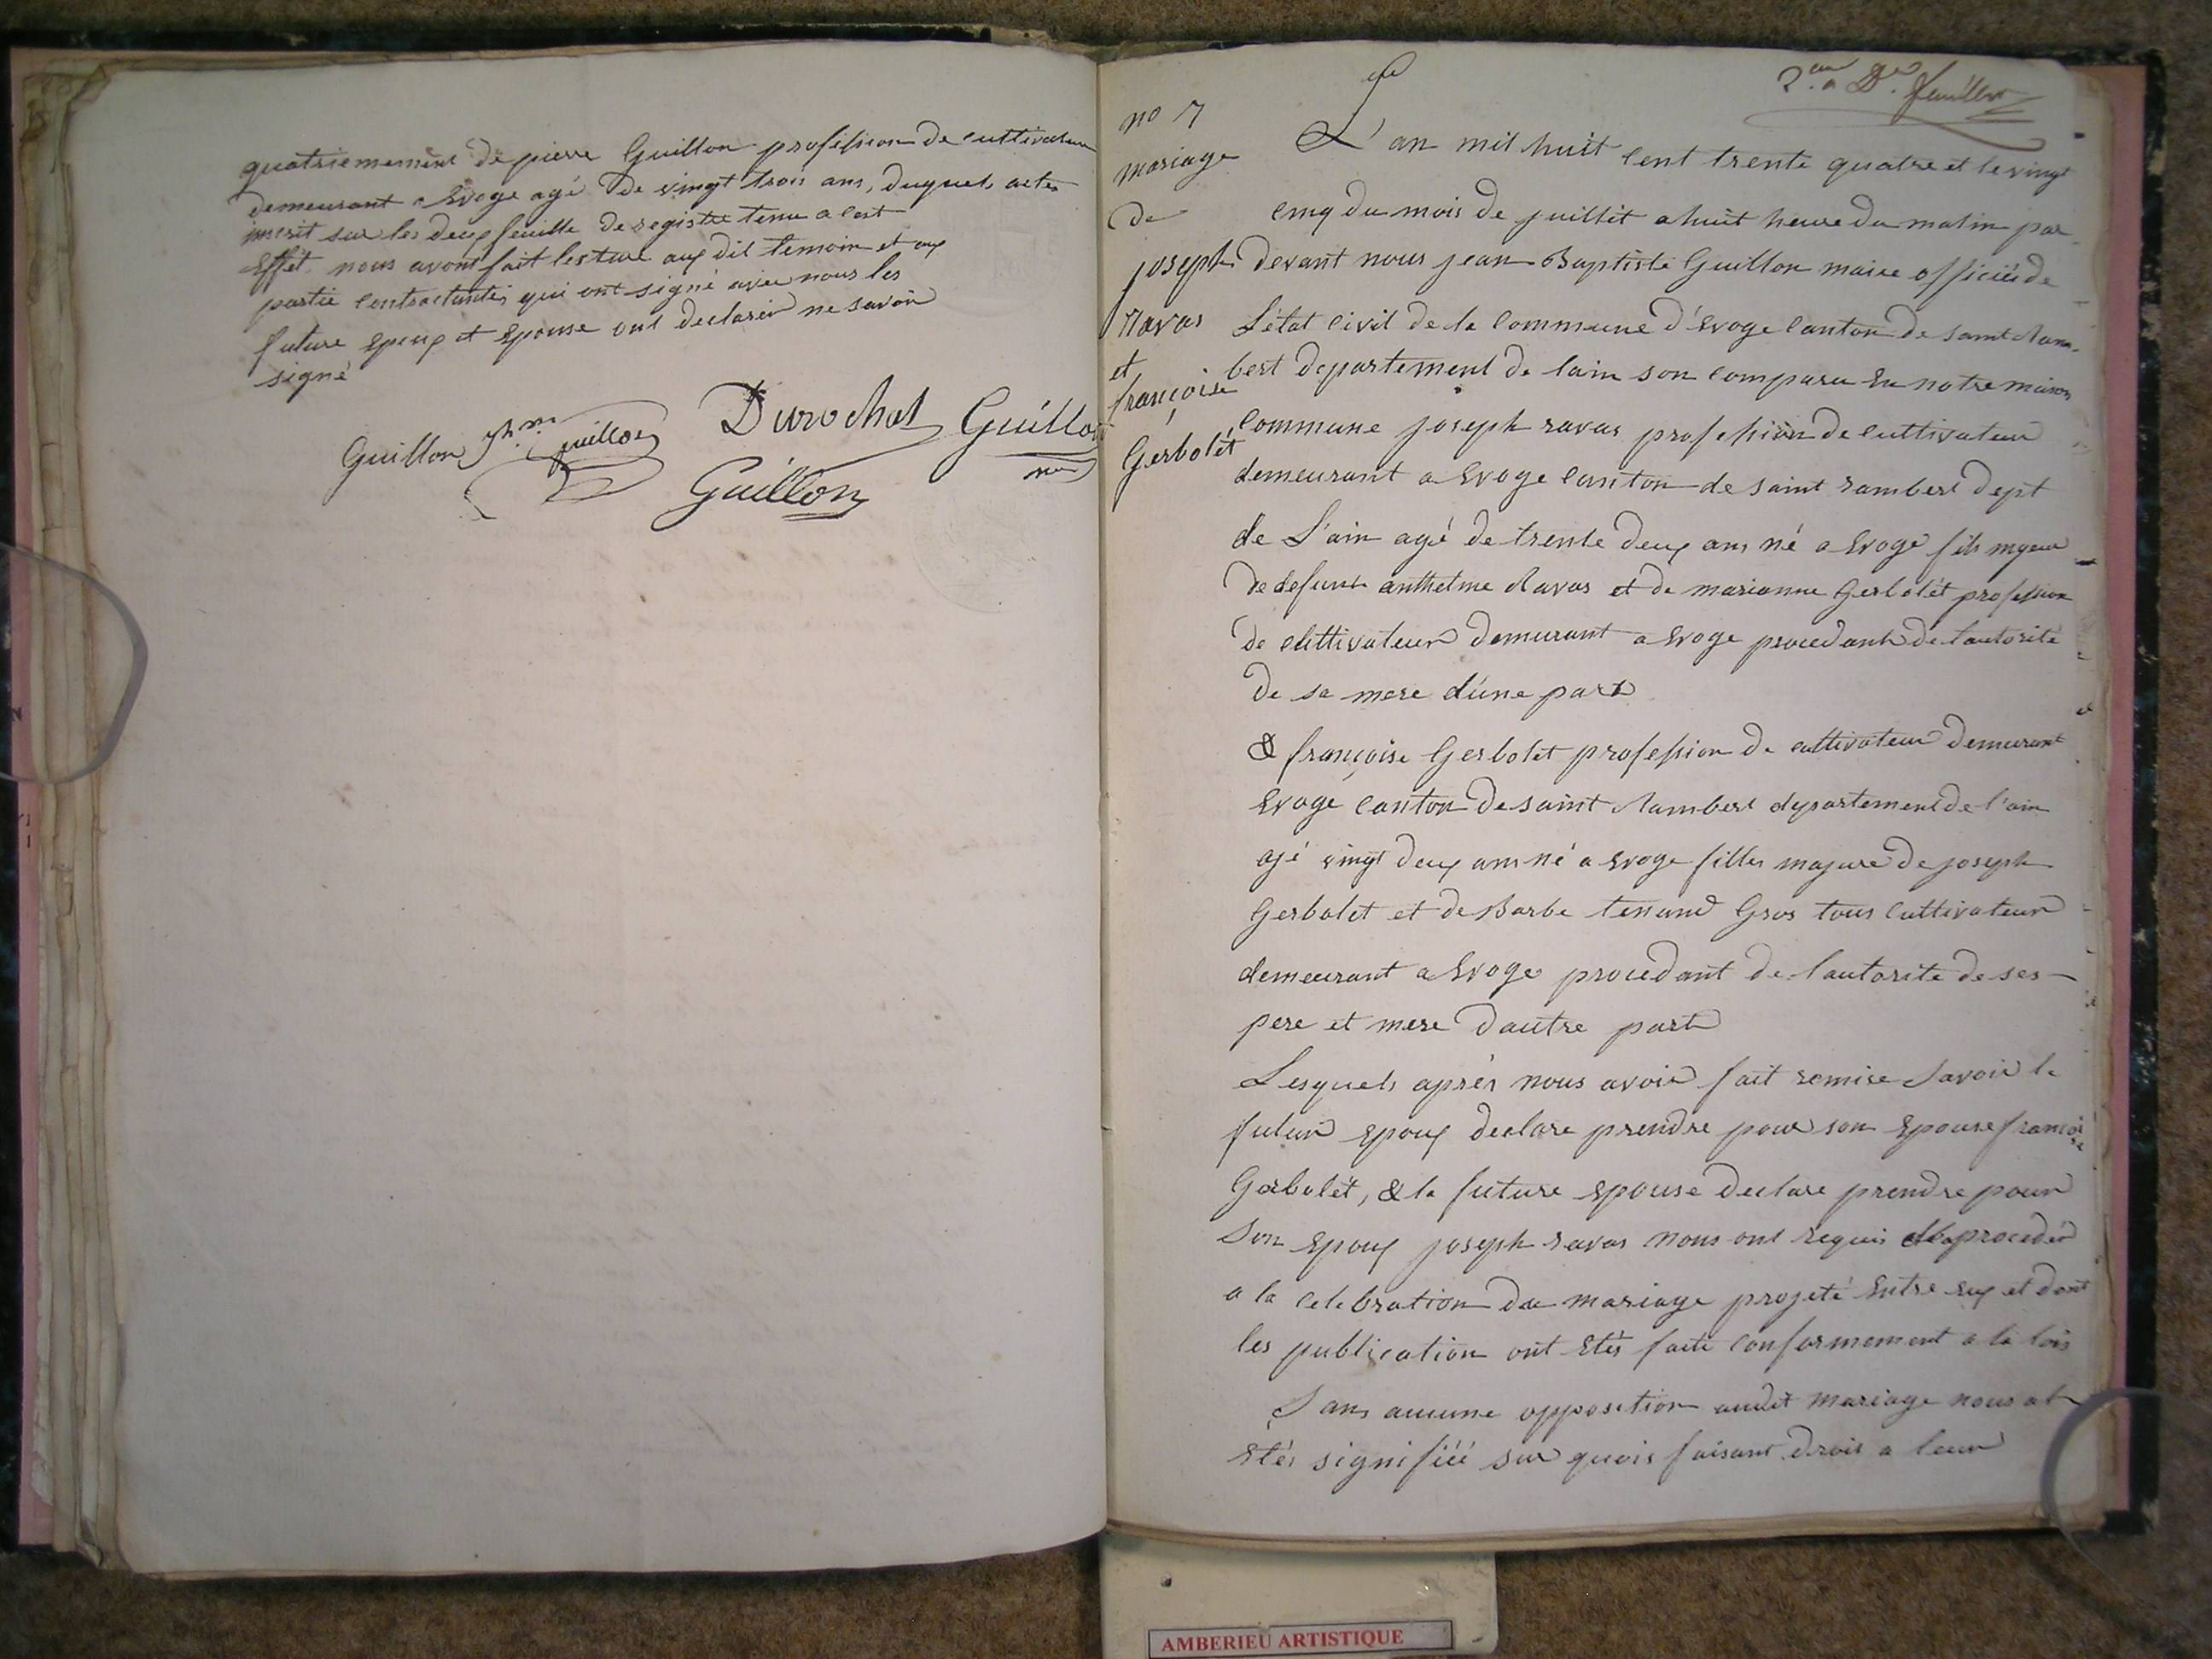 quatriemement de pierre Guillon profession de cultivateur
demeurant a Evoge agé de vingt trois ans, duquels actes
inserit sur les deux feuille de registre tenu a cest
Effet, nous avons fait lecture aux dit temoin et aux
partie contractantes qui ont signé avec nous les
future epoux et Epouse ont declarér ne savoir
signé
Guillon Guillon Durochat Guillon
Guillon
no 7
mariage
de
joseph
ravas
et
françoise
Gerbolét
L'an mil huit cent trente quatre et le vingt
cinq du mois de juillet a huit heure du matin par
devant nous jean Baptiste Guillon maire officiér de
L'état civil de la Commune d'Evoge Canton de Saint Ram-
bert departement de lain son comparu En notre maison
Commune joseph ravas profession de cultivateur
demeurant a Evoge Canton de saint rambert dept
de L'ain agé de trente deux ans né a Evoge fils majeur
de defunt anthelme Ravas et de marianne Gerbolét profession
de cultivateur demurant a Evoge procedant de l'autorite
de sa mere d'une part
& françoise Gerbolet profession de cultivateur demeurant
Evoge Canton de saint Rambert departement de l'ain
agé vingt deux ans né a Evoge filles majure de joseph
Gerbolet et de Barbe tenand Gros tous Cultivateur
demeurant a Evoge procedant de l'autorite de ses
pere et mere d'autre part
Lesquels aprés nous avoir fait remise Savoir le
futur epoux declare prendre pour son Epouse françoise
Gerbolét, & la future epouse declare prendre pour
Son Epoux joseph ravas nous ont requis de procedér
a la celebration du mariage projeté Entre eux et dont
les publication ont Etés faite conformement a la lois
Sans aucune opposition audit mariage nous at
Etés signifiéé sur quois faisant drois a leur
AMBERIEU ARTISTIQUE